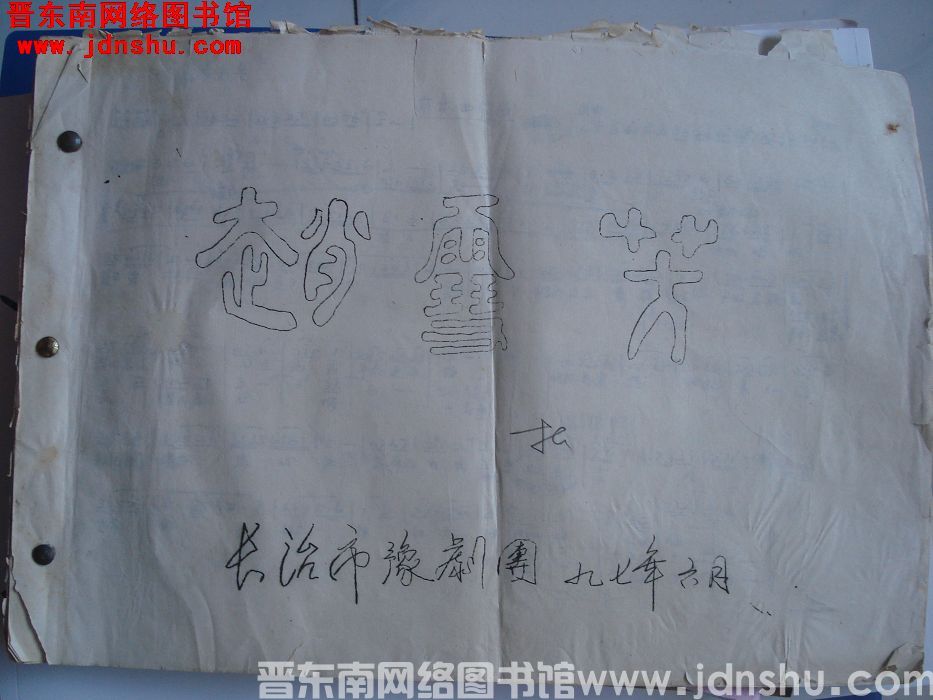 晋东南网络图书馆
www.jdnshu.com
趙雪芳
长治市豫剧團 九七年六月
晋东南网络图书馆www.jdnshu.com